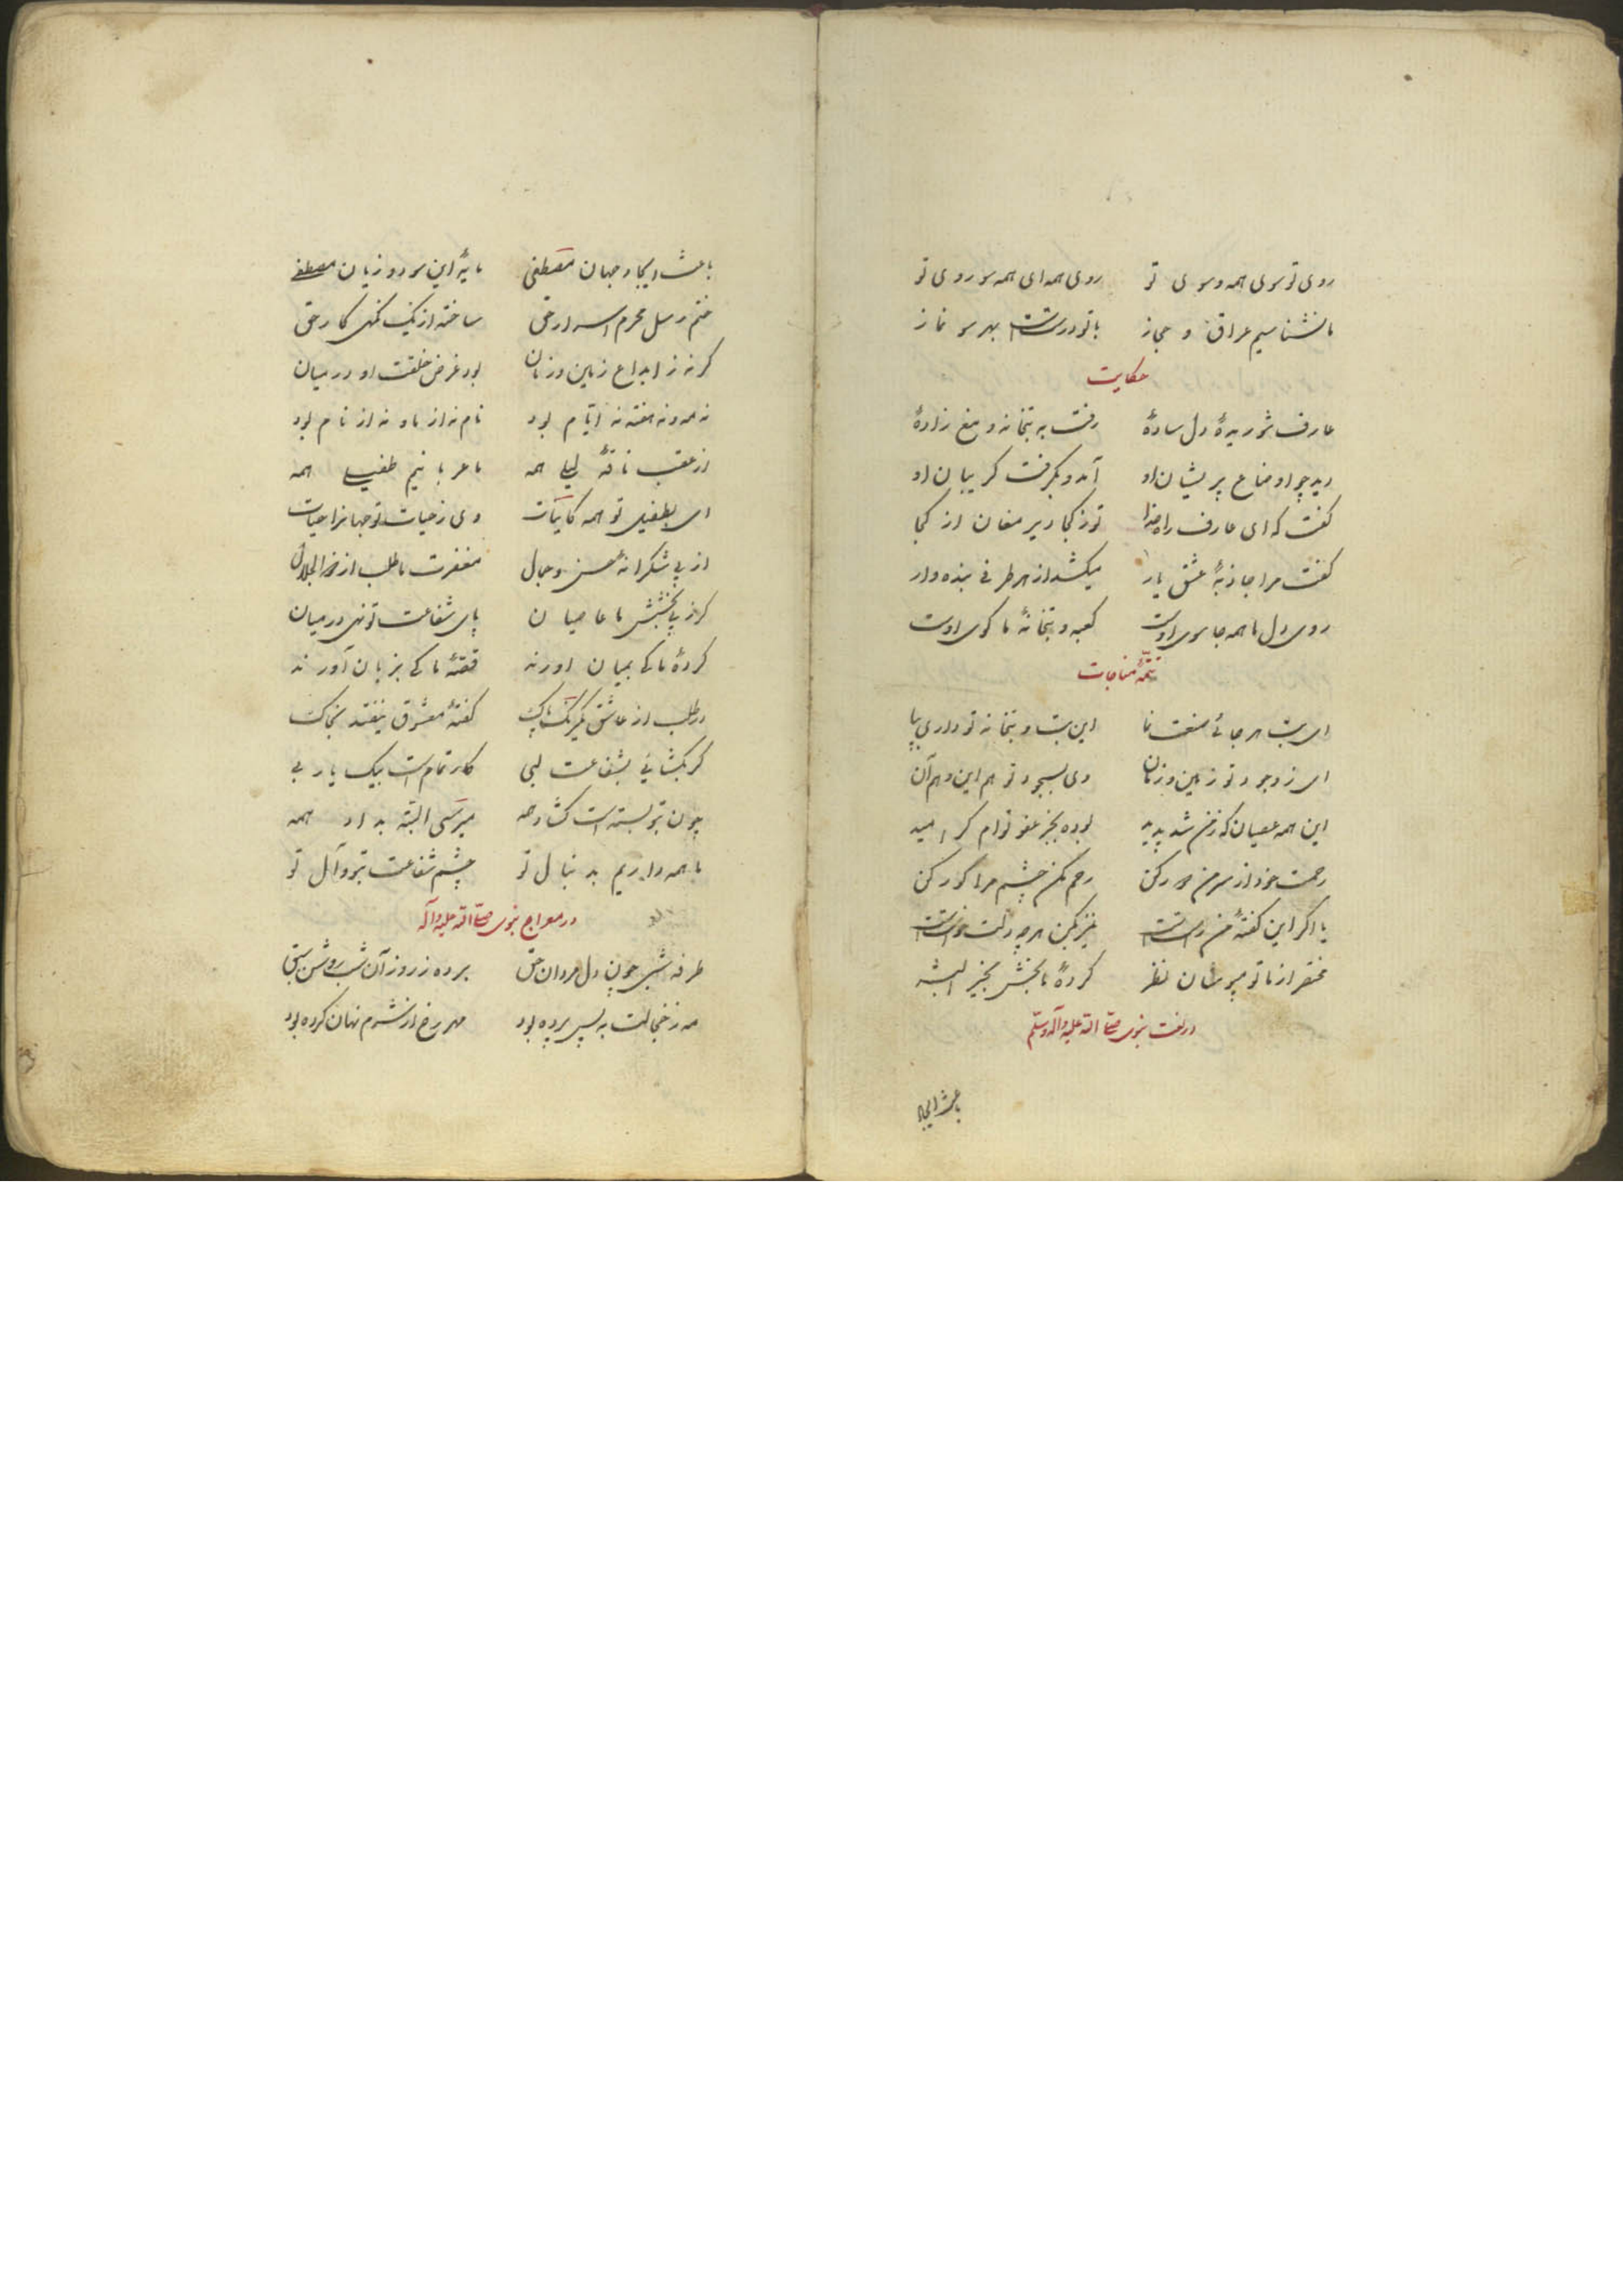 روی تو سوی همه و سوی تو روی همه ای همه سو روی تو
ما نشناسیم عراق و حجاز با تو درستست بهر سو نماز
حکایت
عارف شوریدهٔ دل سادهٔ رفت به بتخانه و مغ زادهٔ
دید چو اوضاع پریشان او آمد و بگرفت گریبان او
گفت که ای عارف راه خدا تو ز کجا دیر مغان از کجا
گفت مرا جاذبهٔ عشق یار میکشد از هر طرفی بنده وار
روی دل ما همه جا سوی اوست کعبه و بتخانهٔ ما کوی اوست
تتمّهٔ مناجات
ای بت هر جائی صنعت نما این بت و بتخانه تو داری بپا
ای ز وجود تو زمین و زمان وی بسجود تو هم این و هم آن
این همه عصیان که ز من شد پدید بوده بجز عفو توام کی امید
رحمت خود از سر من دور مکن رحم بکن چشم مرا کور مکن
یا اگر این گفتهٔ من راستست نیز بکن هر چه دلت خواستست
مختصر از ما تو بپوشان نظر کردهٔ ما بخش بخیر البشر
در نعت نبوی صلی الله علیه وآله وسلم
باعث ایجاد
باعث ایجاد جهان مصطفی مایهٔ این سود و زیان مصطفی
ختم رسل محرم اسرار حق ساخته از یک نگهی کار حق
گرنه ز ابداع زمین و زمان بود غرض خلقت او در میان
نه مه و نه هفته نه ایّام بود نام نه از ما و نه از نام بود
از عقب ناقهٔ لیلی همه ما عربانیم طفیلی همه
ای بطفیل تو همه کاینات وی ز حیات تو جهانرا حیات
از پی شکرانهٔ حسن و جمال مغفرت ما طلب از ذو الجلال
گر از پی بخشش ما عاصیان پای شفاعت تو نهی در میان
کردهٔ ما کی بمیان آورند قصّهٔ ما کی بزبان آورند
در طلب از عاشق یکرنگ پاک گفتهٔ معشوق نیفتد بخاک
گر بگشائی بشفاعت لبی کار تمام است بیک یا ربی
چون بتو بسته است گشاد همه میرسی البتّه بداد همه
ما همه داریم بدنبال تو چشم شفاعت بتو و آل تو
در معراج نبوی صلی الله علیه وآله
طرفه شبی چون دل مردان حق برده ز روز آن شب روشن سبق
مه ز خجالت به پس پرده بود مهر رخ از شرم نهان کرده بود